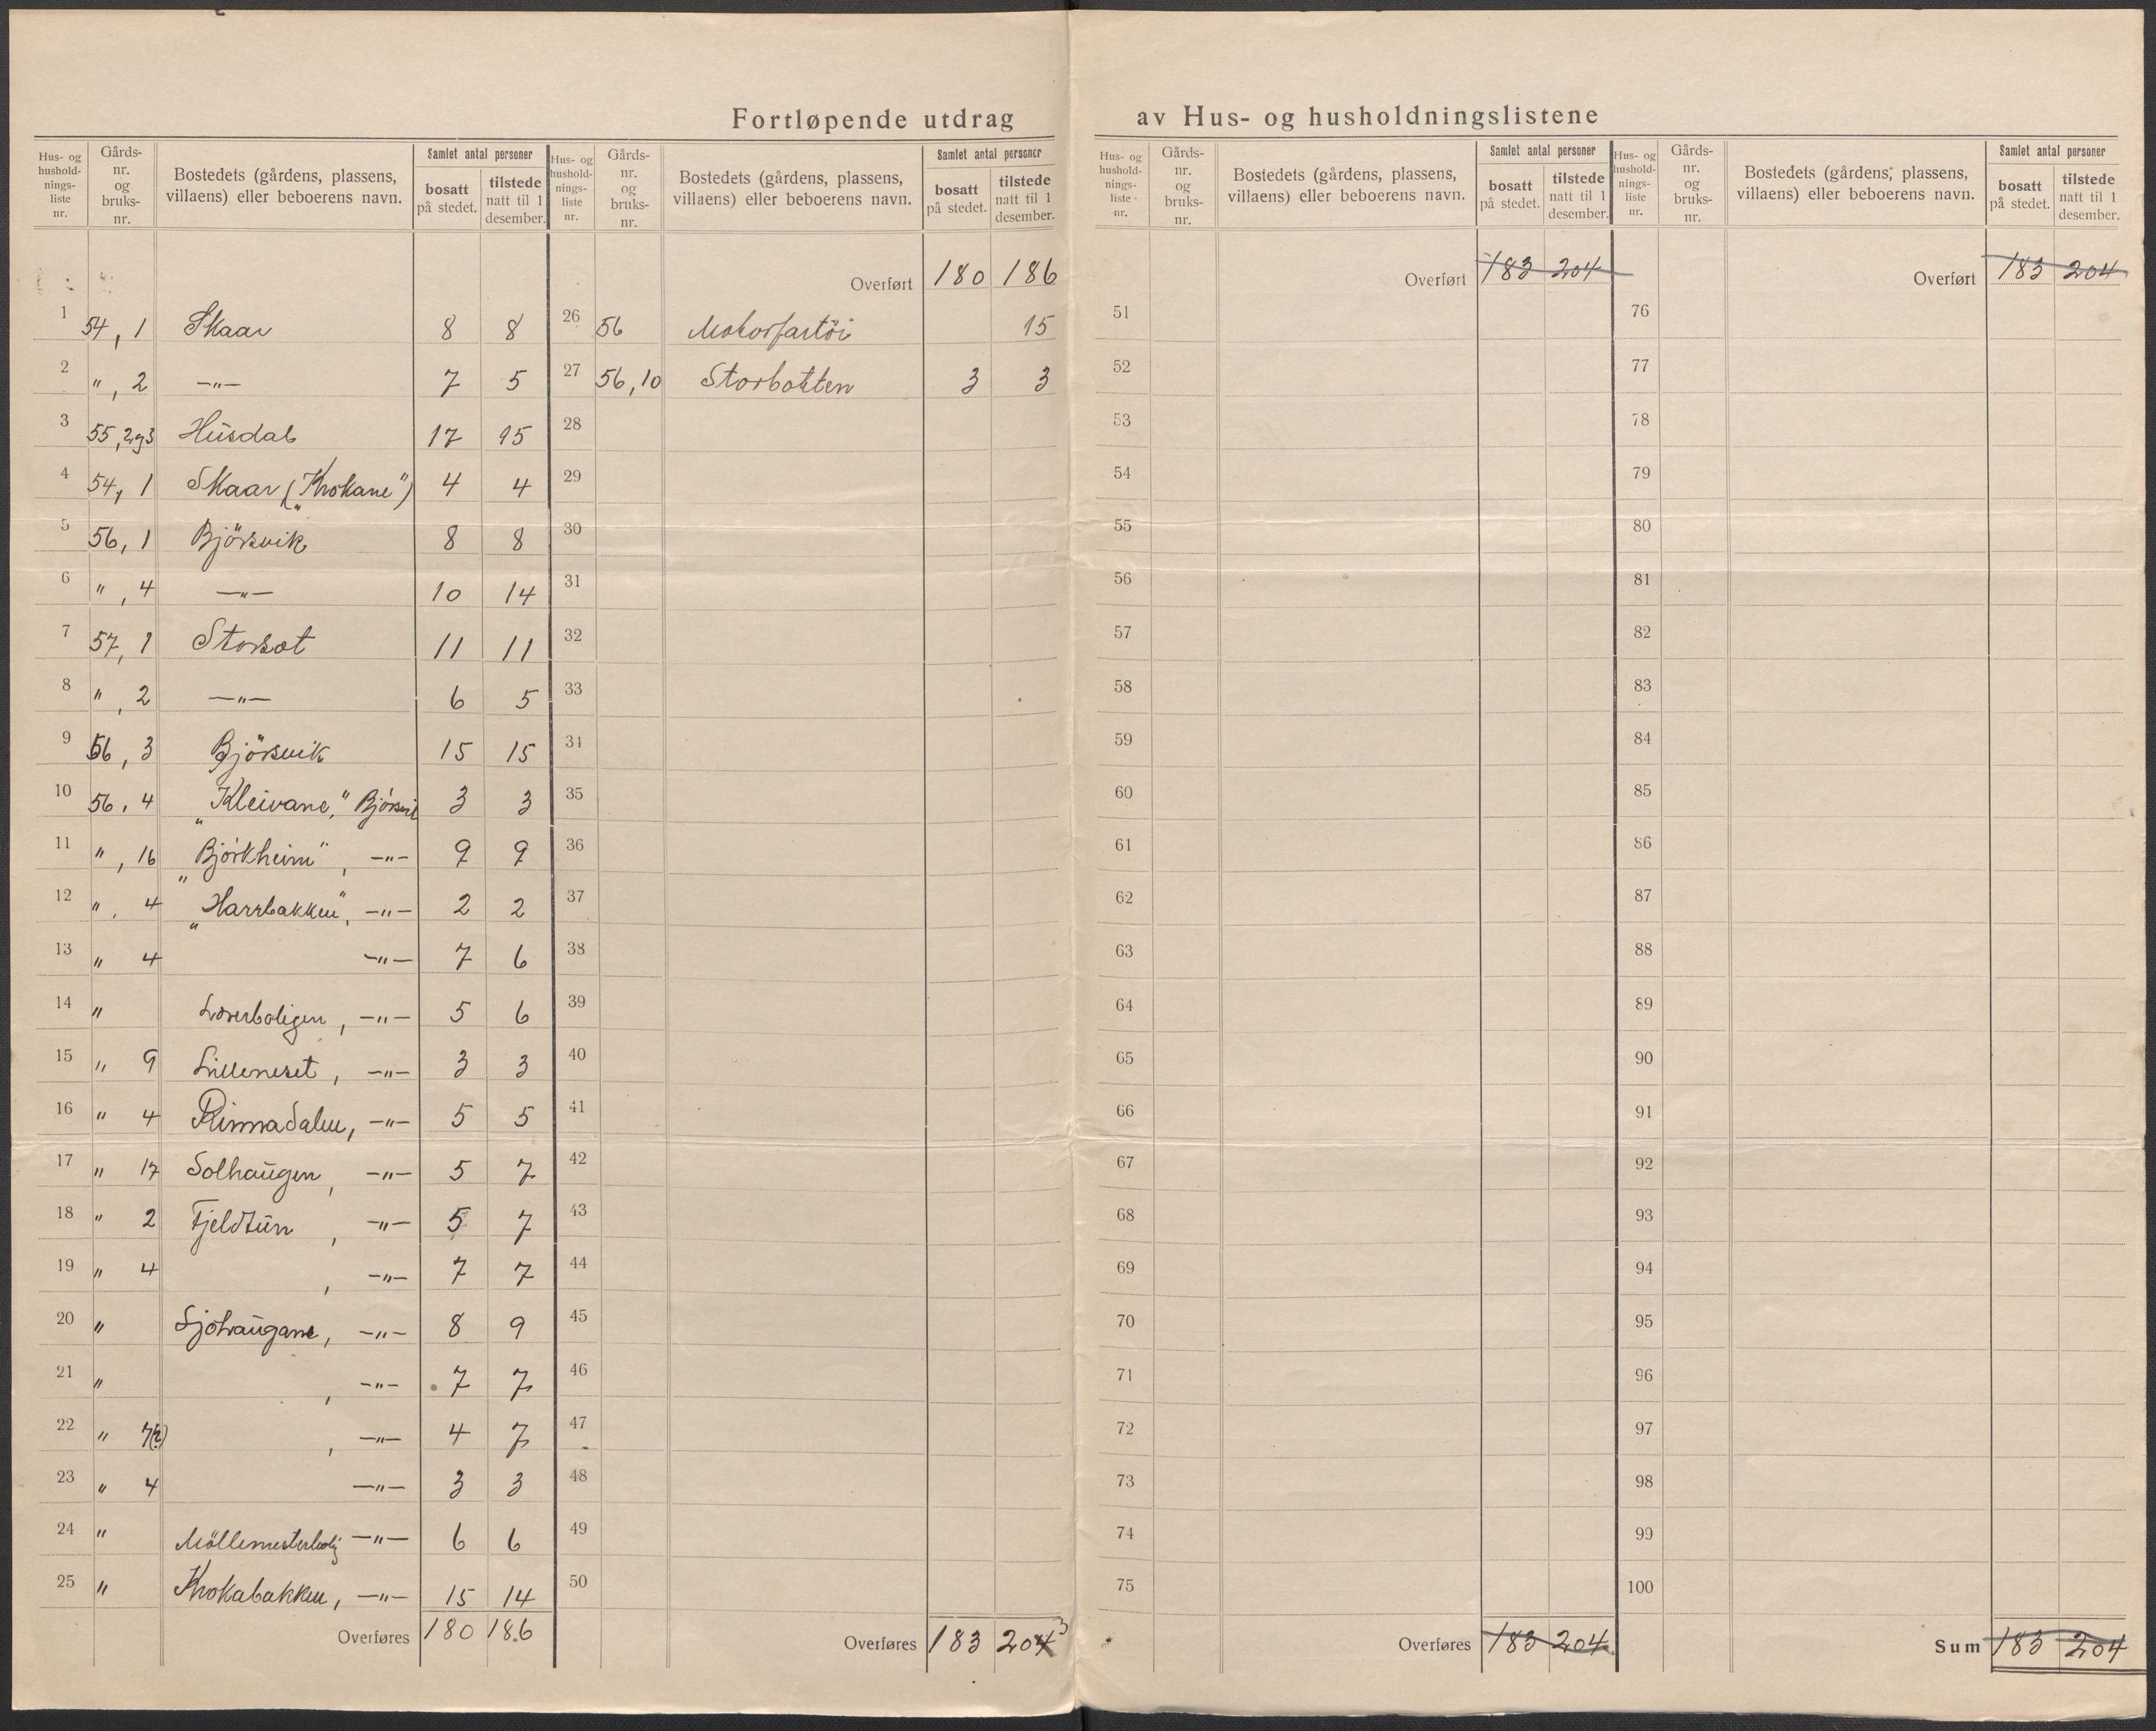 Fortløpende utdrag av Hus- og husholdningslistene
Hus- og husholdnings-liste nr. Gårds-nr. og bruks-nr. Bostedets (gårdens, plassens, villaens) eller beboerens navn. Samlet antal personer bosatt på stedet. tilstede natt til 1 desember.
1 54, 1 Skaar 8 8
2 ", 2 —"— 7 5
3 55, 2 og 3 Husdal 17 15
4 54, 1 Skaar („Krokane") 4 4
5 56, 1 Björsvik 8 8
6 ", 4 —"— 10 14
7 57, 1 Storset 11 11
8 ", 2 —"— 6 5
9 56, 3 Björsvik 15 15
10 56, 4 „Kleivane," Björsvik 3 3
11 ", 16 „Björkheim", —"— 9 9
12 ", 4 „Harrbakken", —"— 2 2
13 " 4 —"— 7 6
14 " Lærerboligen, —"— 5 6
15 " 9 Lilleneset, —"— 3 3
16 " 4 Rinnadalen, —"— 5 5
17 " 17 Solhaugen, —"— 5 7
18 " 2 Fjeldtun, —"— 5 7
19 " 4 , —"— 7 7
20 " Sjöhaugane, —"— 8 9
21 " , —"— 7 7
22 " 7(2) , —"— 4 7
23 " 4 —"— 3 3
24 " Möllemesterbolig —"— 6 6
25 " Krokabakken, —"— 15 14
Overføres 180 186
Hus- og husholdnings-liste nr. Gårds-nr. og bruks-nr. Bostedets (gårdens, plassens, villaens) eller beboerens navn. Samlet antal personer bosatt på stedet. tilstede natt til 1 desember.
Overført 180 186
26 56 Motorfartöi 15
27 56, 10 Storbotten 3 3
28
29
30
31
32
33
34
35
36
37
38
39
40
41
42
43
44
45
46
47
48
49
50
Overføres 183 204 3
Hus- og husholdnings-liste nr. Gårds-nr. og bruks-nr. Bostedets (gårdens, plassens, villaens) eller beboerens navn. Samlet antal personer bosatt på stedet. tilstede natt til 1 desember.
Overført 183 204
51
52
53
54
55
56
57
58
59
60
61
62
63
64
65
66
67
68
69
70
71
72
73
74
75
Overføres 183 204
Hus- og husholdnings-liste nr. Gårds-nr. og bruks-nr. Bostedets (gårdens, plassens, villaens) eller beboerens navn. Samlet antal personer bosatt på stedet. tilstede natt til 1 desember.
Overført 183 204
76
77
78
79
80
81
82
83
84
85
86
87
88
89
90
91
92
93
94
95
96
97
98
99
100
Sum 183 204